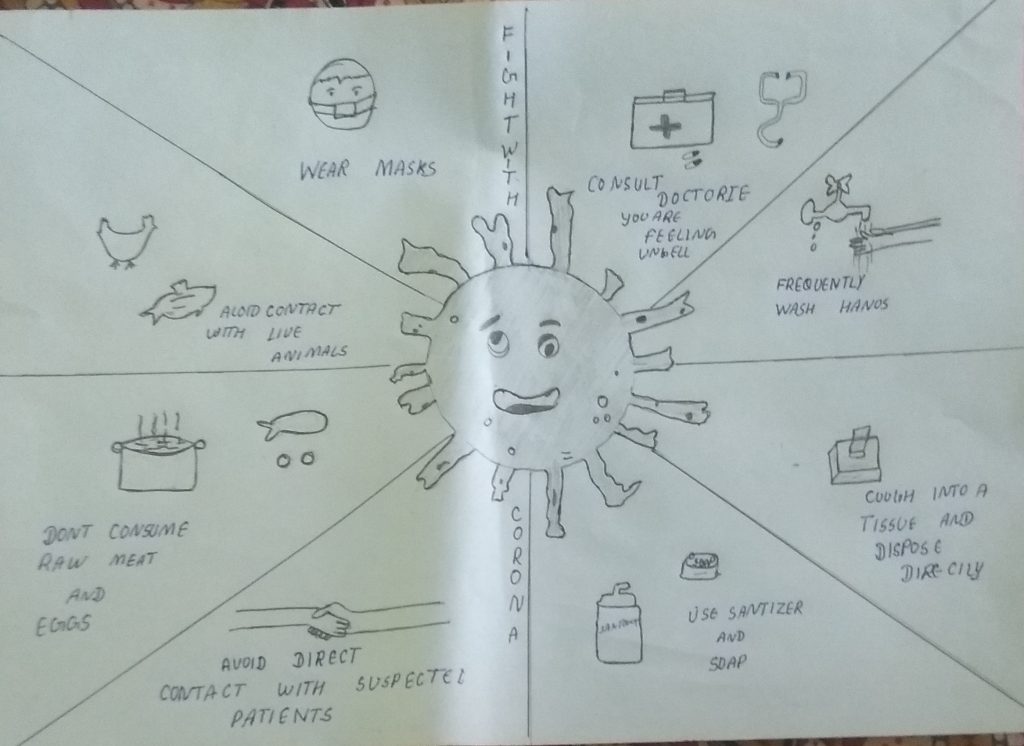 FIGHT WITH
WEAR MASKS
CONSULT
DOCTORIE
YOU ARE
FEELING
UNWELL
FREQUENTLY
WASH HANDS
AVOID CONTACT
WITH LIVE
ANIMALS
DONT CONSUME
RAW MEAT
AND
EGGS
COUGH INTO A
TISSUE AND
DISPOSE
DIRECILY
CORONA
AVOID DIRECT
CONTACT WITH SUSPECTED
PATIENTS
USE SANTIZER
AND
SOAP